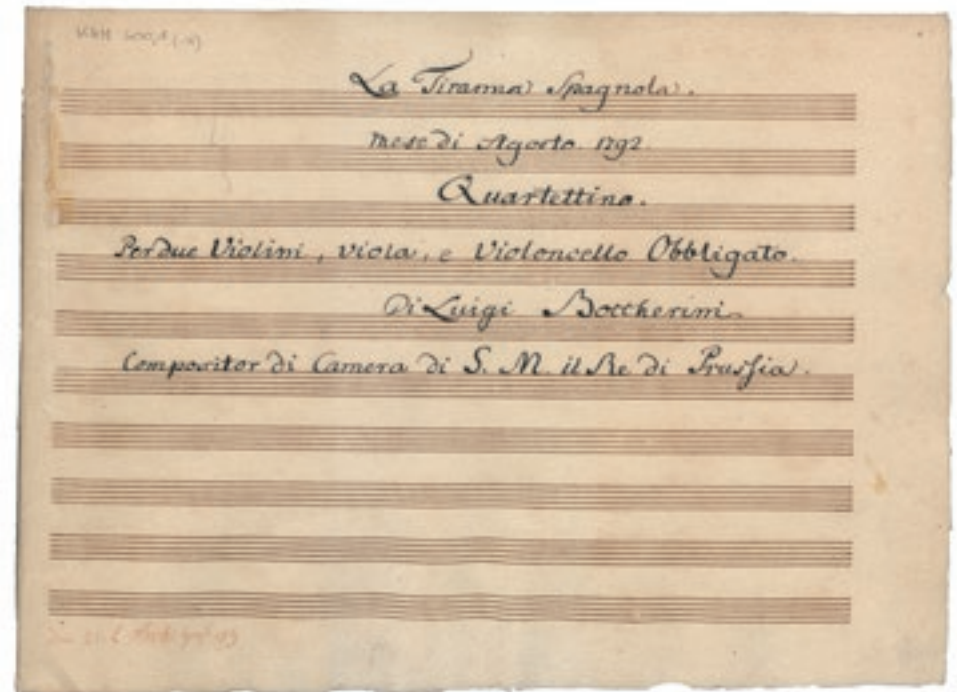 La Tiranna Spagnola.
Mese di Agosto. 1792.
Quartettino.
Per due Violini, viola, e Violoncello Obbligato.
Di Luigi Boccherini
Compositor di Camera di S. M. il Re di Prussia.